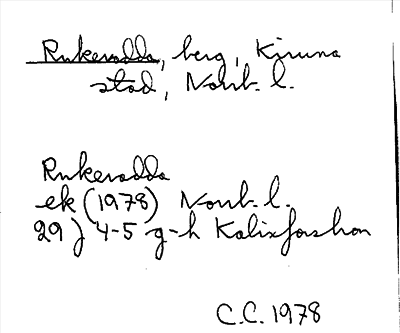 Rukevadda, berg, Kiruna
stad, Norrb. l.
Rukevadda
ek (1978) Norrb. l.
29J 4-5 g-h Kalixforshon
C.C. 1978